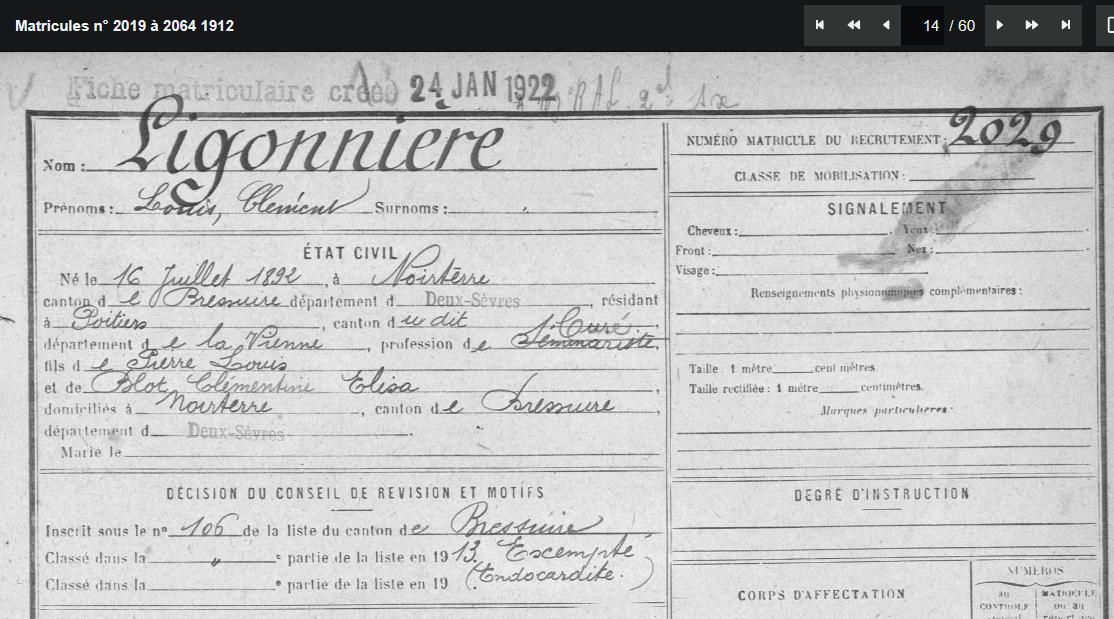 Matricules n° 2019 à 2064 1912
14 / 60
Fiche matriculaire créée 24 JAN 1922
Nom : Ligonniere
Prénoms : Louis, Clément Surnoms :
ÉTAT CIVIL
Né le 16 Juillet 1892, à Noirterre
canton de Bressuire département d Deux-Sèvres, résidant
à Poitiers, canton du dit
Curé
département de la Vienne, profession de Séminariste,
fils de Pierre Louis
et de Blot Clémentine Elisa,
domiciliés à Noirterre, canton de Bressuire,
département d Deux-Sèvres.
Marie le
DÉCISION DU CONSEIL DE REVISION ET MOTIFS
Inscrit sous le n° 106 de la liste du canton de Bressuire
Classé dans la " e partie de la liste en 1913. Excempté
Classé dans la e partie de la liste en 19 (Endocardite.)
NUMÉRO MATRICULE DU RECRUTEMENT : 2029
CLASSE DE MOBILISATION :
SIGNALEMENT
Cheveux : Yeux :
Front : Nez :
Visage :
Renseignements physionomiques complémentaires :
Taille : 1 mètre centimètres.
Taille rectifiée : 1 mètre centimètres.
Marques particulières :
DEGRÉ D'INSTRUCTION
CORPS D'AFFECTATION
NUMÉROS
au CONTRÔLE
MATRICULE ou au